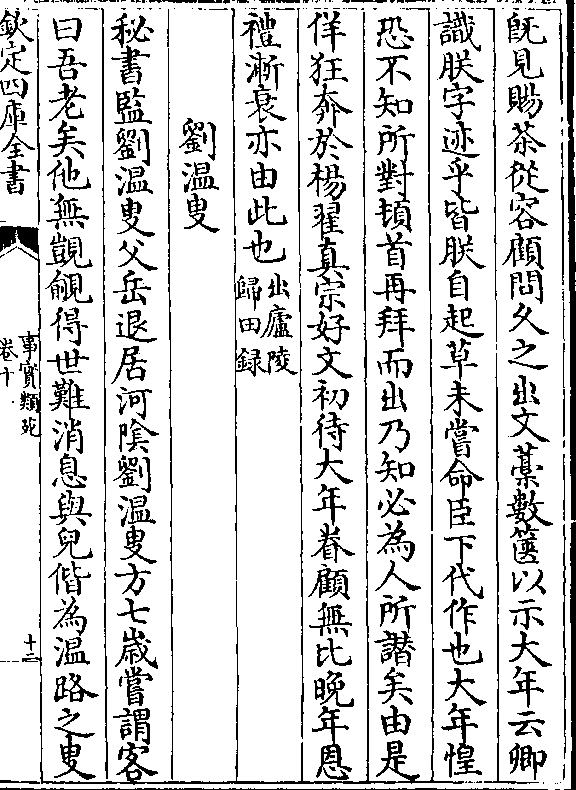 既見賜茶從容顧問久之出文藁數篋以示大年云卿
識朕字迹乎皆朕自起草未嘗命臣下代作也大年惶
恐不知所對頓首再拜而出乃知必為人所譖矣由是
佯狂奔於楊翟真宗好文初待大年眷顧無比晚年恩
禮漸衰亦由此也出廬陵
歸田録
劉温叟
秘書監劉温叟父岳退居河隂劉温叟方七歳嘗謂客
曰吾老矣他無覬覦得世難消息與兒偕為温路之叟
欽定四庫全書
事實類苑
卷十
十二